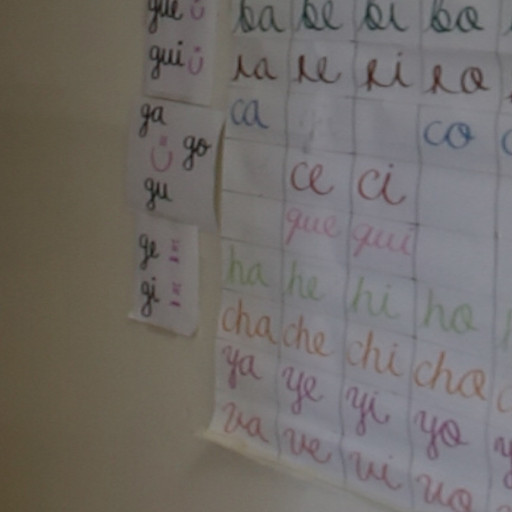 gue
gui
ga
go
gu
ge
gi
ba be bi bo
ra re ri ro
ca co
ce ci
que qui
ha he hi ho
cha che chi cho
ya ye yi yo
va ve vi vo